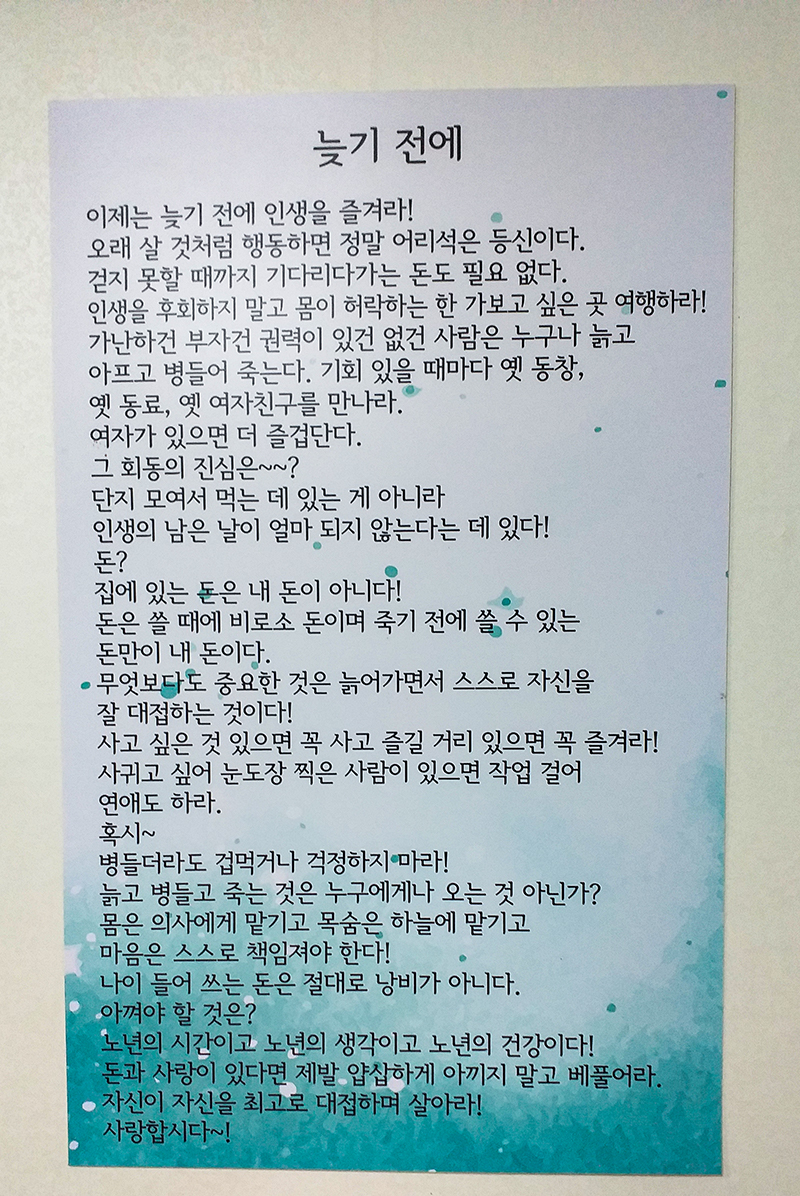 늦기 전에
이제는 늦기 전에 인생을 즐겨라!
오래 살 것처럼 행동하면 정말 어리석은 등신이다.
걷지 못할 때까지 기다리다가는 돈도 필요 없다.
인생을 후회하지 말고 몸이 허락하는 한 가보고 싶은 곳 여행하라!
가난하건 부자건 권력이 있건 없건 사람은 누구나 늙고
아프고 병들어 죽는다. 기회 있을 때마다 옛 동창,
옛 동료, 옛 여자친구를 만나라.
여자가 있으면 더 즐겁단다.
그 회동의 진심은~~?
단지 모여서 먹는 데 있는 게 아니라
인생의 남은 날이 얼마 되지 않는다는 데 있다!
돈?
집에 있는 돈은 내 돈이 아니다!
돈은 쓸 때에 비로소 돈이며 죽기 전에 쓸 수 있는
돈만이 내 돈이다.
무엇보다도 중요한 것은 늙어가면서 스스로 자신을
잘 대접하는 것이다!
사고 싶은 것 있으면 꼭 사고 즐길 거리 있으면 꼭 즐겨라!
사귀고 싶어 눈도장 찍은 사람이 있으면 작업 걸어
연애도 하라.
혹시~
병들더라도 겁먹거나 걱정하지 마라!
늙고 병들고 죽는 것은 누구에게나 오는 것 아닌가?
몸은 의사에게 맡기고 목숨은 하늘에 맡기고
마음은 스스로 책임져야 한다!
나이 들어 쓰는 돈은 절대로 낭비가 아니다.
아껴야 할 것은?
노년의 시간이고 노년의 생각이고 노년의 건강이다!
돈과 사랑이 있다면 제발 얍삽하게 아끼지 말고 베풀어라.
자신이 자신을 최고로 대접하며 살아라!
사랑합시다~!